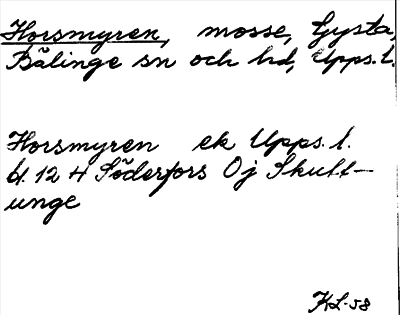 Horsmyren, mosse, Gysta,
Bälinge sn och hd, Upps.l.
Horsmyren ek Upps. l.
bl. 12 4 Söderfors Oj Skutt-
unge
KL-58